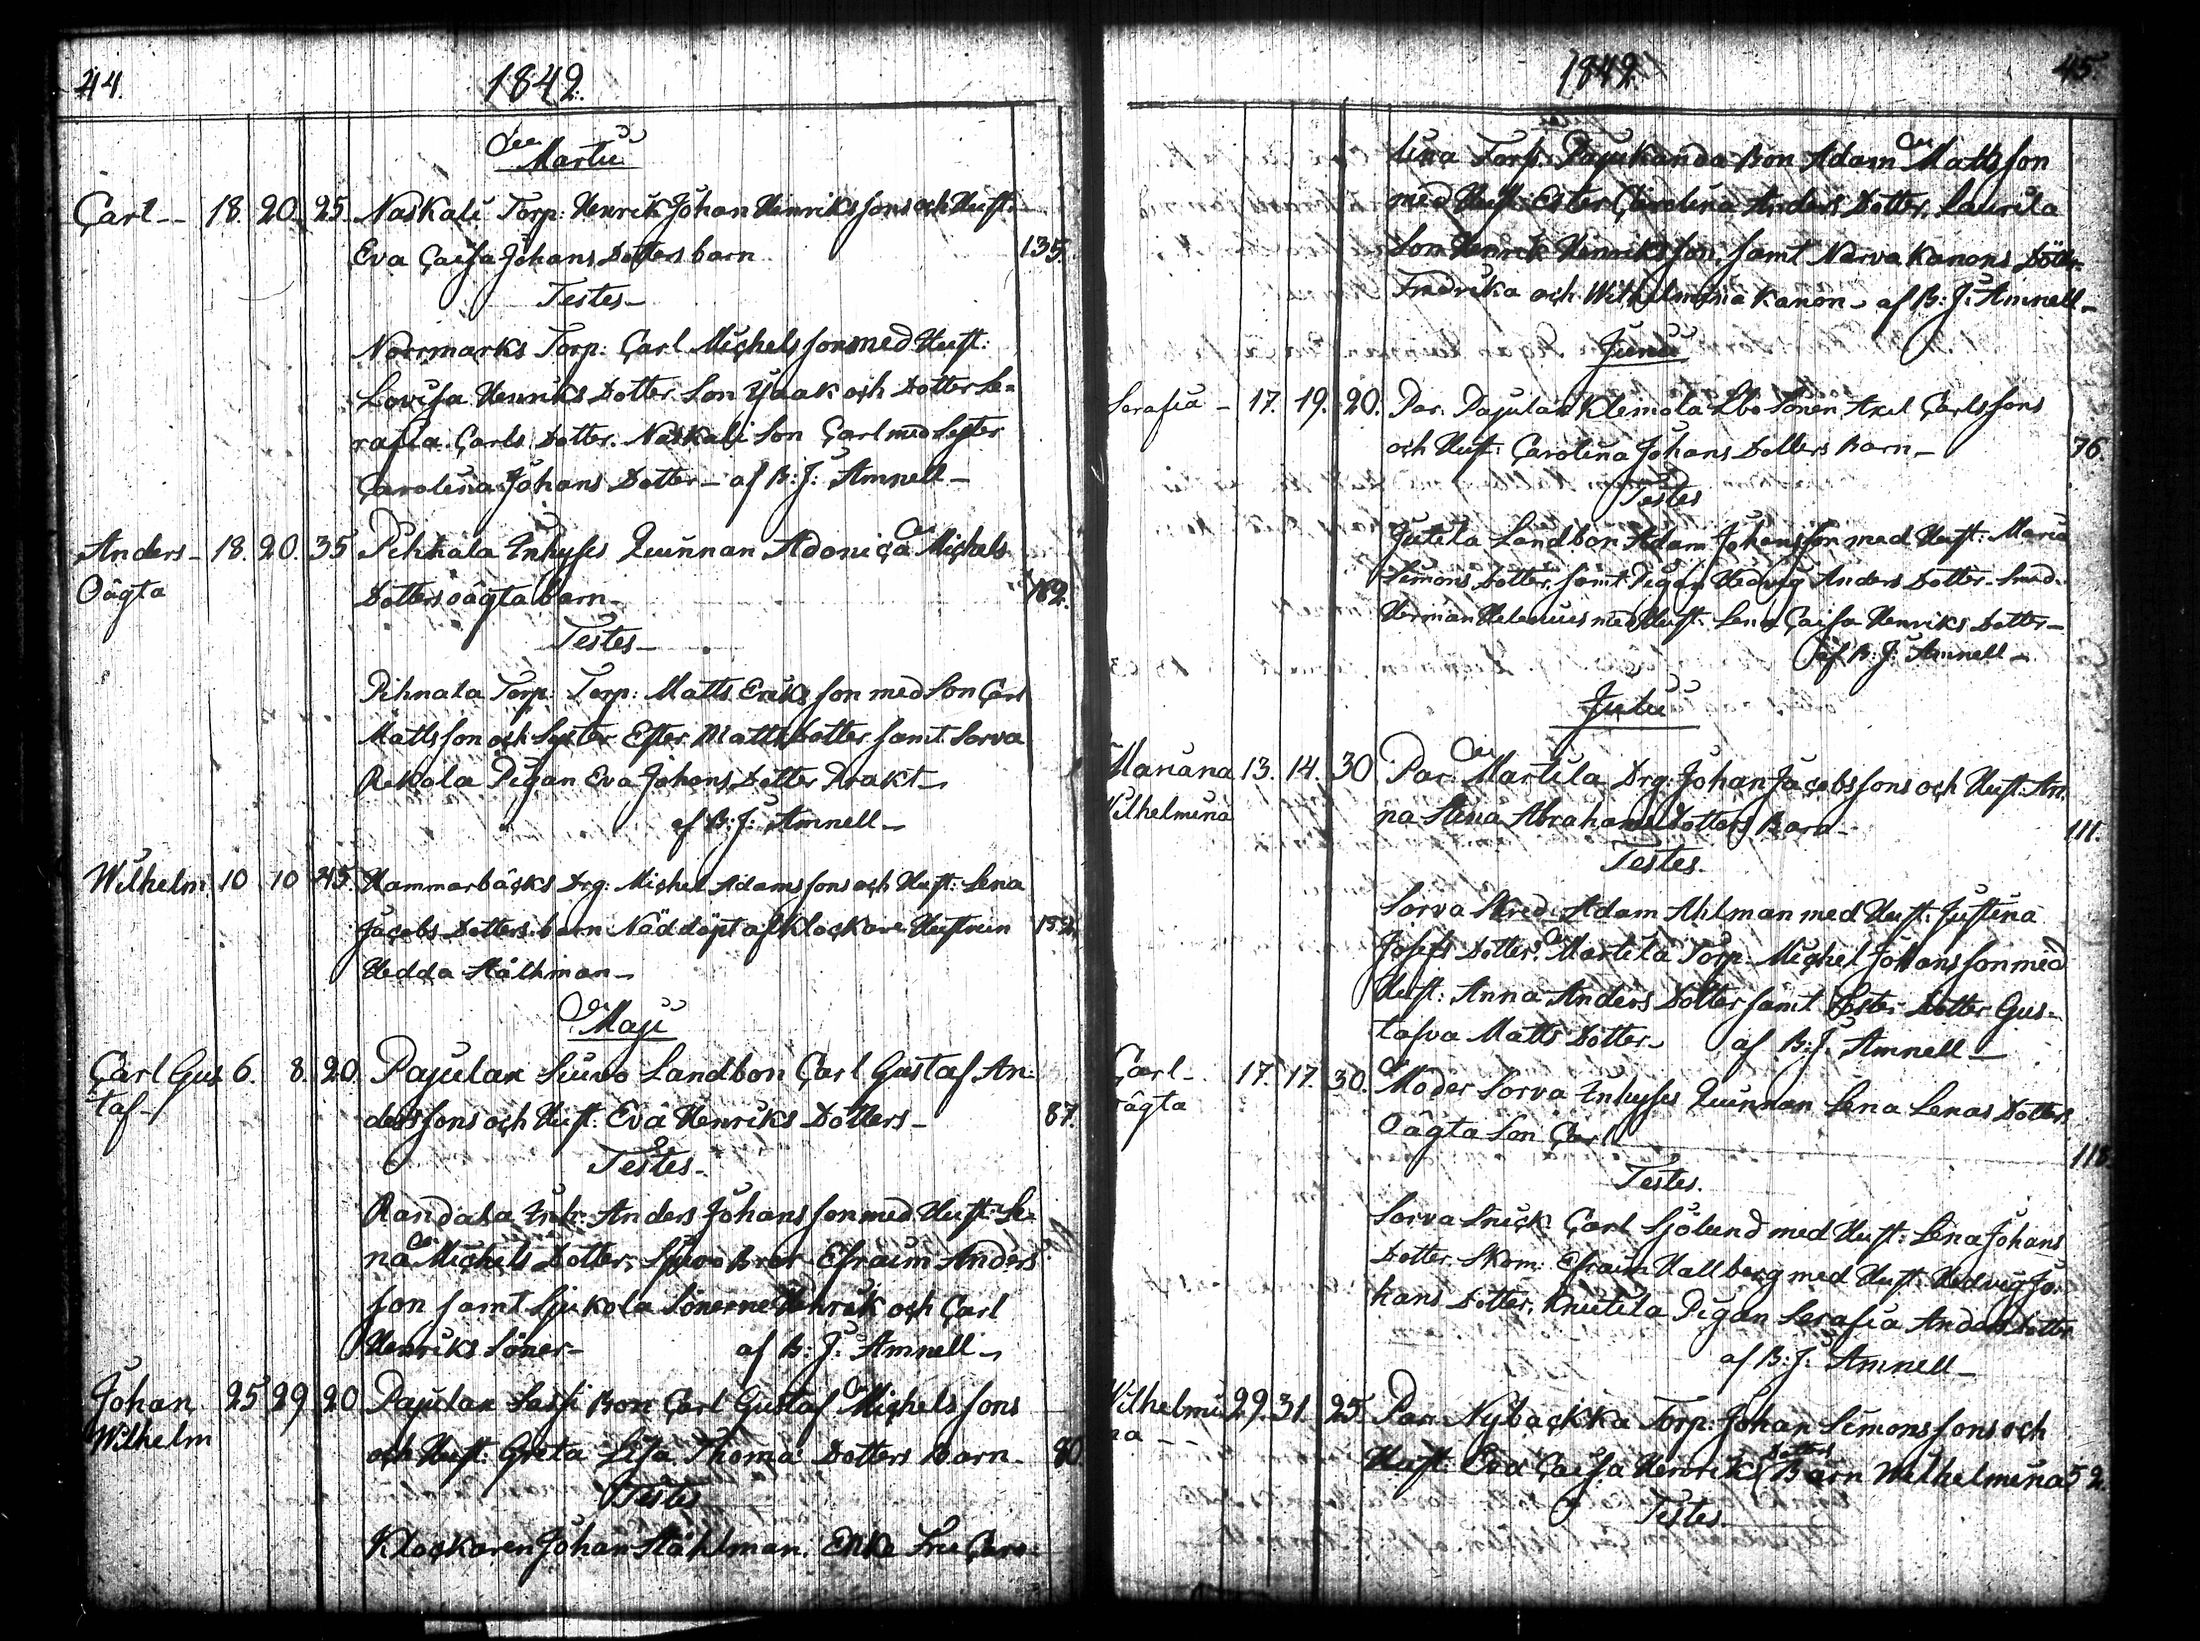 44.
1842.
Martii
Carl — 18. 20. 25. Naskali Torp: Henrik Johan Henrikssons och Hust:
Eva Caisa Johans Dotters barn 135.
Testes —
Norrmarks Torp: Carl Michelsson med Hust:
Lovisa Henriks Dotter. Son Isaak och Dotter Se-
rafia Carls Dotter. Naskali Son Carl med Syster
Carolina Johans Dotter — af B: J: Amnell —
Anders — 18. 20. 35 Pihnala Inhyses Quinnan Adoniça Michels
Oägta
Dotters oägta barn 182.
Testes —
Pihnala Torp: Torp: Matts Eriksson med Son Carl
Mattsson och Syster Ester Matts Dotter samt Sorva
Rekola Pigan Eva Johans Dotter Drakt —
af B: J: Amnell —
Wilhelm 10 10 45. Hammarbäcks Drg: Michel Adamssons och Hust: Lena
Jacobs Dotters barn Nöddöpt af Klockare Hustrun 152.
Hedda Ståhlman —
Maji
Carl Gus- 6. 8. 20. Pajulax Siuvo Landbon Carl Gustaf An-
taf —
derssons och Hust: Eva Henriks Dotters — 87.
Testes —
Randala Inh: Anders Johansson med Hust: Le-
na Michels Dotter, Siuvo Bror Efraim Anders
son samt Sjukola Sönerne Henrik och Carl
Henriks Söner — af B: J: Amnell —
Johan 25 29 20 Pajulax Sassi Bon Carl Gustaf Michelssons
Wilhelm
och Hust: Greta Lisa Thomæ Dotters Barn — 80
Testes
Klockaren Johan Ståhlman. Enke Fru Caro-
1842.
45.
lina Torp: Pajukanda Bon Adam Mattsson
med Hust: Ester Carolina Anders Dotter, Laurila
Son Henrik Henriksson, samt Narva Kanons Dött:
Fredrika och Wilhelmina Kanon — af B: J: Amnell —
Junii
Serafia — 17. 19. 20. Par. Pajulax Kleimola Åbo Sonen Axel Carlssons
och Hust: Carolina Johans Dotters Barn — 76.
Testes
Jutila Landbon Adam Johansson med Hust: Maria
Simons Dotter, samt Pigan Hedvig Anders Dotter. Smed.
Herman Helenius med Hust: Lena Caisa Henriks Dotter —
af B: J: Amnell —
Julii
Mariana 13. 14. 30 Par: Martila Drg: Johan Jacobssons och Hust: An-
Wilhelmina
na Stina Abrahams Dotters Barn — 111.
Testes.
Sorva Skred: Adam Ahlman med Hust: Justina
Josefs Dotter. Martila Torp: Michel Johansson med
Hust: Anna Anders Dotter samt Dotter Gus-
tafva Matts Dotter — af B: J: Amnell —
Carl — 17. 17. 30. Moder Sorva Inhyses Quinnan Lena Lenas Dotters
oägta
Oägta Son Carl 118
Testes.
Sorva Snick: Carl Sjölund med Hust: Lena Johans
Dotter. Skom: Efraim Hallberg med Hust: Hedvig Jo-
hans Dotter, Knutila Pigan Serafia Anders Dotter
af B: J: Amnell —
Wilhelmi- 29. 31. 25. Par. Nybackka Torp: Johan Simonssons och
na —
Hust: Eva Caisa Henriks Dotters Barn Wilhelmina 52.
Testes.